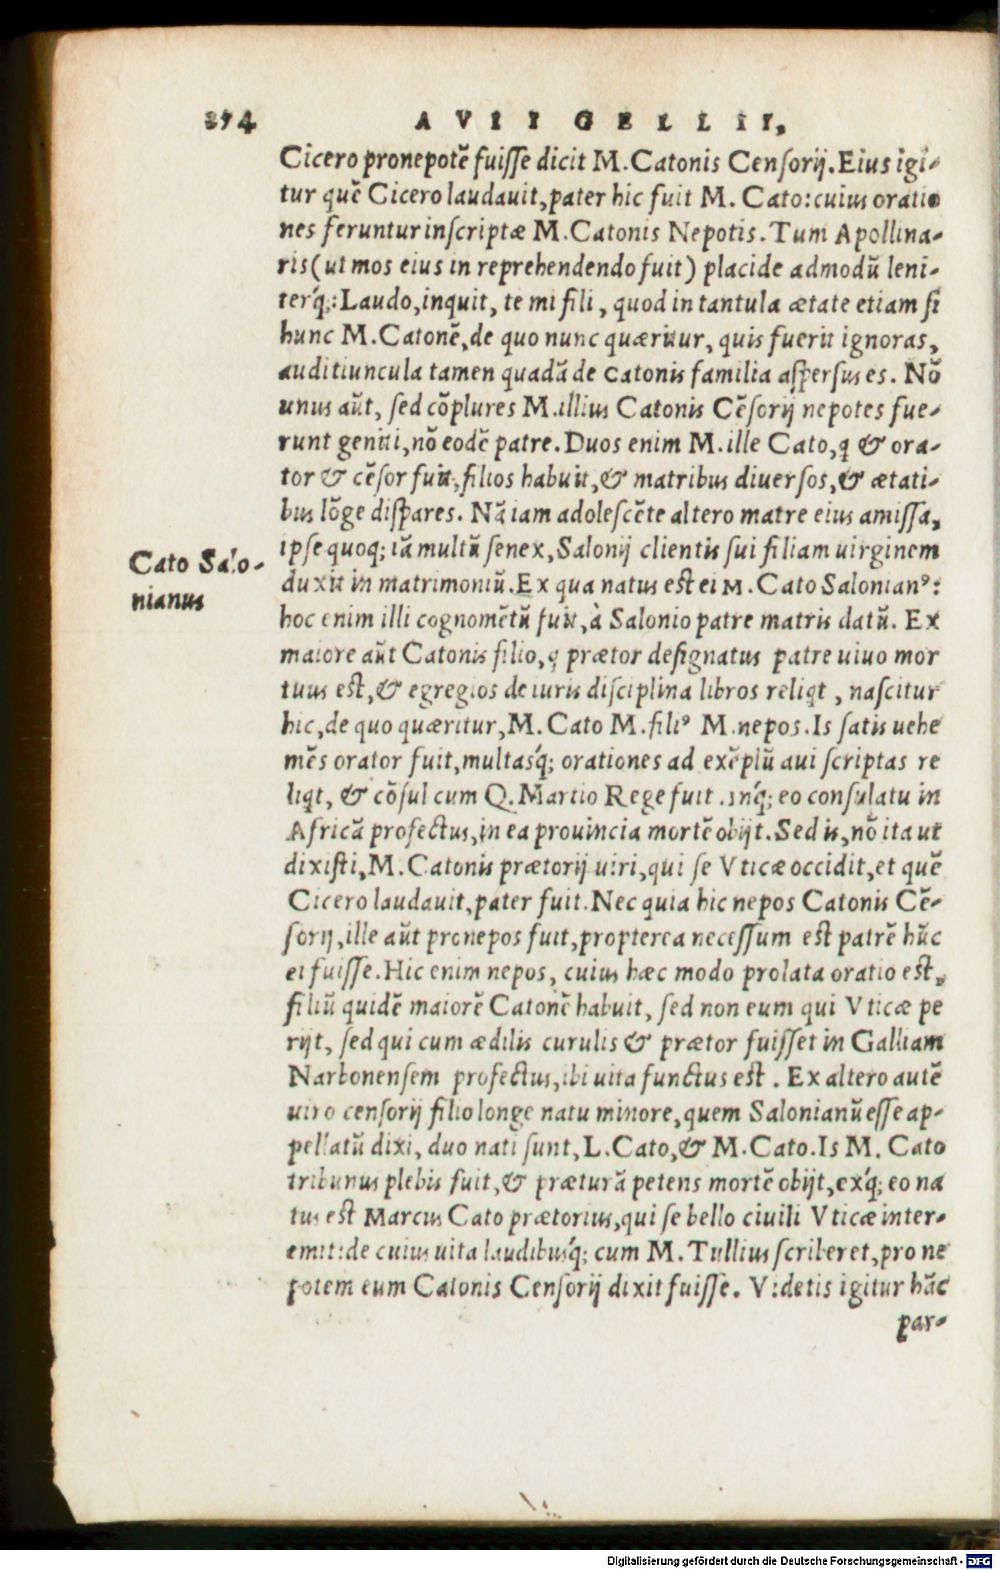 374
AVLI GELLII,
Cicero pronepotē fuisse dicit M. Catonis Censorij. Eius igi-
tur quē Cicero laudauit, pater hic fuit M. Cato: cuius oratio
nes feruntur inscriptæ M. Catonis Nepotis. Tum Apollina-
ris (ut mos eius in reprehendendo fuit) placide admodū leni-
terq́;: Laudo, inquit, te mi fili, quod in tantula ætate etiam si
hunc M. Catonē, de quo nunc quæritur, quis fuerit ignoras,
auditiuncula tamen quadā de Catonis familia aspersus es. Nō
unus aūt, sed cōplures M. illius Catonis Cēsorij nepotes fue-
runt geniti, nō eodē patre. Duos enim M. ille Cato, q & ora-
tor & cēsor fuit, filios habuit, & matribus diuersos, & ætati-
bus lōge dispares. Nā iam adolescēte altero matre eius amissa,
ipse quoq; iā multū senex, Salonij clientis sui filiam uirginem
duxit in matrimoniū. Ex qua natus est ei M. Cato Salonianꝰ:
Cato Salo-
nianus
hoc enim illi cognomētū fuit, à Salonio patre matris datū. Ex
maiore aūt Catonis filio, q prætor designatus patre uiuo mor
tuus est, & egregios de iuris disciplina libros reliqt, nascitur
hic, de quo quæritur, M. Cato M. filiꝰ M. nepos. Is satis uehe
mēs orator fuit, multasq́; orationes ad exēplū aui scriptas re
liqt, & cōsul cum Q. Martio Rege fuit. inq́; eo consulatu in
Africā profectus, in ea prouincia mortē obijt. Sed is, nō ita ut
dixisti, M. Catonis prætorij uiri, qui se Vticæ occidit, et quē
Cicero laudauit, pater fuit. Nec quia hic nepos Catonis Cē-
sorij, ille aūt pronepos fuit, propterea necessum est patrē hūc
ei fuisse. Hic enim nepos, cuius hæc modo prolata oratio est,
filiū quidē maiorē Catonē habuit, sed non eum qui Vticæ pe
rijt, sed qui cum ædilis curulis & prætor fuisset in Galliam
Narbonensem profectus, ibi uita functus est. Ex altero autē
uiro censorij filio longe natu minore, quem Salonianū esse ap-
pellatū dixi, duo nati sunt, L. Cato, & M. Cato. Is M. Cato
tribunus plebis fuit, & præturā petens mortē obijt, exq́; eo na
tus est Marcus Cato prætorius, qui se bello ciuili Vticæ inter-
emit: de cuius uita laudibusq́; cum M. Tullius scriberet, prone
potem eum Catonis Censorij dixit fuisse. Videtis igitur hāc
par-
Digitalisierung gefördert durch die Deutsche Forschungsgemeinschaft - DFG